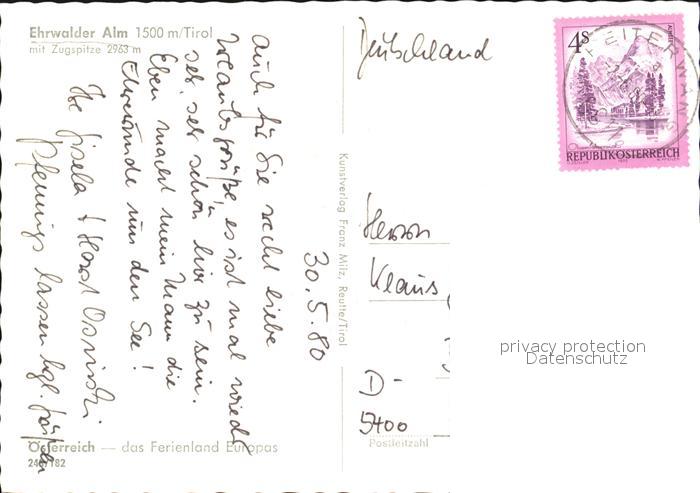 Ehrwalder Alm 1500 m/Tirol
mit Zugspitze 2963 m
Auch für Sie recht liebe
Urlaubsgrüße, es ist mal wieder
sehr, sehr schön hier zu sein.
Eben macht mein Mann die
Ehrenrunde um den See!
Ihre Gisela + Horst
Pfennings lassen hzl. grüßen
30.5.80
Österreich — das Ferienland Europas
246/182
Kunstverlag Franz Milz, Reutte/Tirol
Deutschland
Herrn
Klaus
D-
5400
Postleitzahl
4 S
REPUBLIK ÖSTERREICH
HEITERWANG
privacy protection
Datenschutz